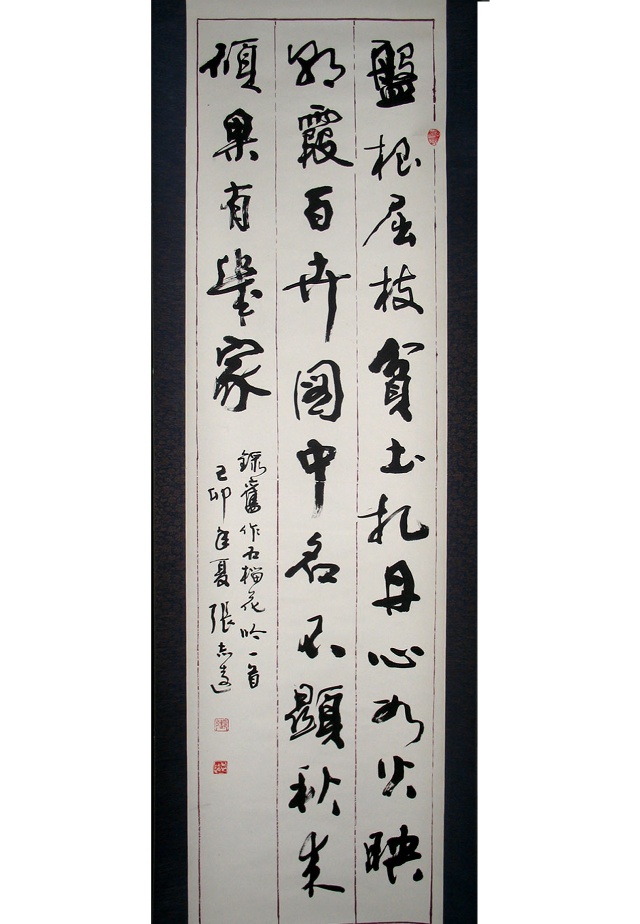 盤根屈枝貧土扎丹心如火映
朝霞百卉園中名不顯秋來
碩果有幾家
錄舊作石榴花吟一首
己卯年夏張志遠